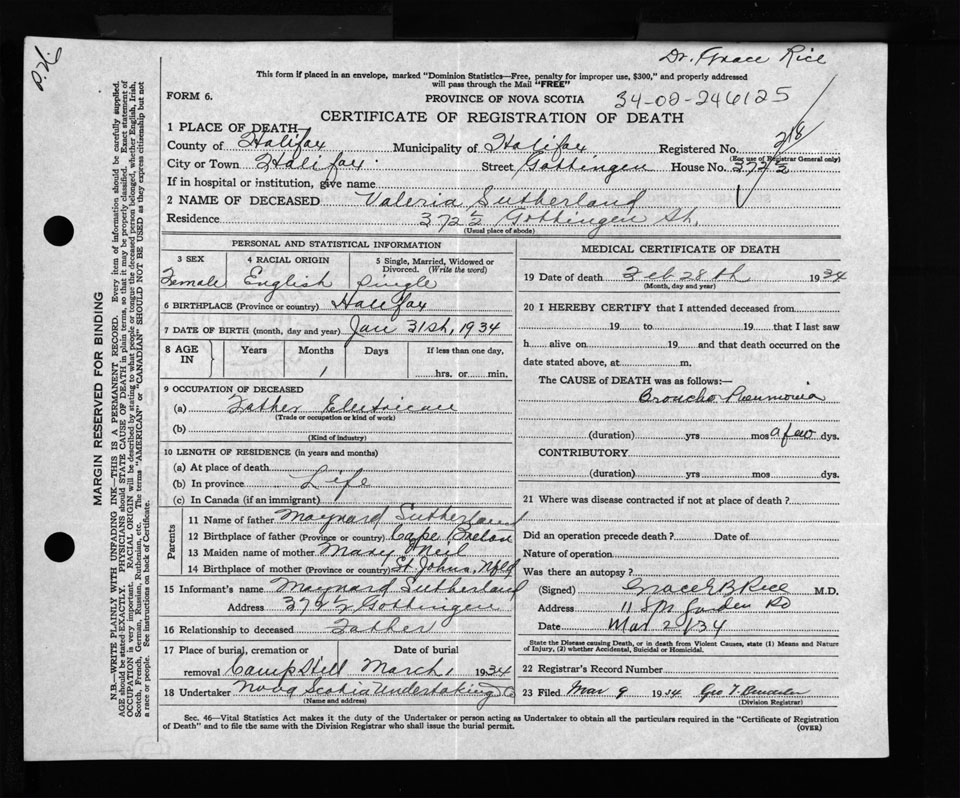 Dr. Grace Rice
P.26
This form if placed in an envelope, marked "Dominion Statistics—Free, penalty for improper use, $300," and properly addressed
will pass through the Mail "FREE"
FORM 6.
PROVINCE OF NOVA SCOTIA
34-02-246125
CERTIFICATE OF REGISTRATION OF DEATH
1 PLACE OF DEATH
County of Halifax Municipality of Halifax Registered No. 218
(For use of Registrar General only)
City or Town Halifax Street Gottingen House No. 372½
If in hospital or institution, give name
2 NAME OF DECEASED Valeria Sutherland
Residence 372½ Gottingen St.
(Usual place of abode)
PERSONAL AND STATISTICAL INFORMATION
3 SEX 4 RACIAL ORIGIN 5 Single, Married, Widowed or Divorced. (Write the word)
Female English Single
6 BIRTHPLACE (Province or country) Halifax
7 DATE OF BIRTH (month, day and year) Jan 31st, 1934
8 AGE IN Years Months Days If less than one day,
1 hrs. or min.
9 OCCUPATION OF DECEASED
(a) Father Electrician
(Trade or occupation or kind of work)
(b)
(Kind of industry)
10 LENGTH OF RESIDENCE (in years and months)
(a) At place of death
(b) In province Life
(c) In Canada (if an immigrant)
Parents
11 Name of father Maynard Sutherland
12 Birthplace of father (Province or country) Cape Breton
13 Maiden name of mother Mary O'Neil
14 Birthplace of mother (Province or country) St. Johns, Nfld
15 Informant's name Maynard Sutherland
Address 372½ Gottingen
16 Relationship to deceased Father
17 Place of burial, cremation or removal Date of burial
Camp Hill March 1 1934
18 Undertaker Nova Scotia Undertaking Co
(Name and address)
MEDICAL CERTIFICATE OF DEATH
19 Date of death Feb 28th 1934
(Month, day and year)
20 I HEREBY CERTIFY that I attended deceased from
19 to 19 that I last saw
h alive on 19 and that death occurred on the
date stated above, at m.
The CAUSE of DEATH was as follows:—
Broncho Pneumonia
(duration) yrs mos a few dys.
CONTRIBUTORY
(duration) yrs mos dys.
21 Where was disease contracted if not at place of death?
Did an operation precede death? Date of
Nature of operation
Was there an autopsy?
(Signed) Grace E B Rice M.D.
Address 118 Spr Garden Rd
Date Mar 2/34
State the Disease causing Death, or in death from Violent Causes, state (1) Means and Nature
of Injury, (2) whether Accidental, Suicidal or Homicidal.
22 Registrar's Record Number
23 Filed Mar 9 1934
(Division Registrar)
Sec. 46—Vital Statistics Act makes it the duty of the Undertaker or person acting as Undertaker to obtain all the particulars required in the "Certificate of Registration
of Death" and to file the same with the Division Registrar who shall issue the burial permit.
(OVER)
MARGIN RESERVED FOR BINDING
N.B.—WRITE PLAINLY WITH UNFADING INK—THIS IS A PERMANENT RECORD. Every item of information should be carefully supplied.
AGE should be stated EXACTLY. PHYSICIANS should STATE CAUSE OF DEATH in plain terms, so that it may be properly classified. Exact statement of
OCCUPATION is very important. RACIAL ORIGIN will be described by stating to what people or tongue the deceased person belonged, whether English, Irish,
Scotch, French, German, Russian, Ruthenian, etc. The terms "AMERICAN" or "CANADIAN" SHOULD NOT BE USED as they express citizenship but not
a race or people. See instructions on back of Certificate.